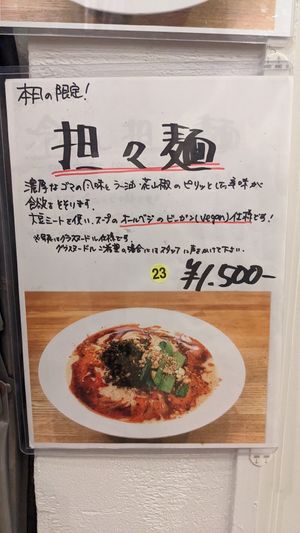 本日の限定!
担々麺
濃厚なゴマの風味とラー油、花山椒のピリッとした辛味が
食欲をそそります。
大豆ミートを使い、スープのオールベジのビーガン(vegan)仕様です!
グラスヌードル仕様です。
グラスヌードルご希望の場合にはスタッフに声をかけて下さい。
23
¥1,500-